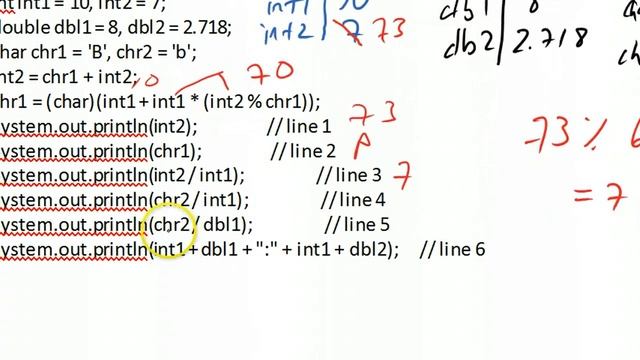 int int1 = 10, int2 = 7;
double dbl1 = 8, dbl2 = 2.718;
char chr1 = 'B', chr2 = 'b';
int2 = chr1 + int2;
chr1 = (char)(int1 + int1 * (int2 % chr1));
system.out.println(int2); //line 1
system.out.println(chr1); //line 2
system.out.println(int2 / int1); //line 3
system.out.println(chr2 / int1); //line 4
system.out.println(chr2 / dbl1); //line 5
system.out.println(int1 + dbl1 + ":" + int1 + dbl2); //line 6
int1 10
int2 7 73
db1 8
db2 2.718
ch
10
70
73
P
7
73 % 6
= 7